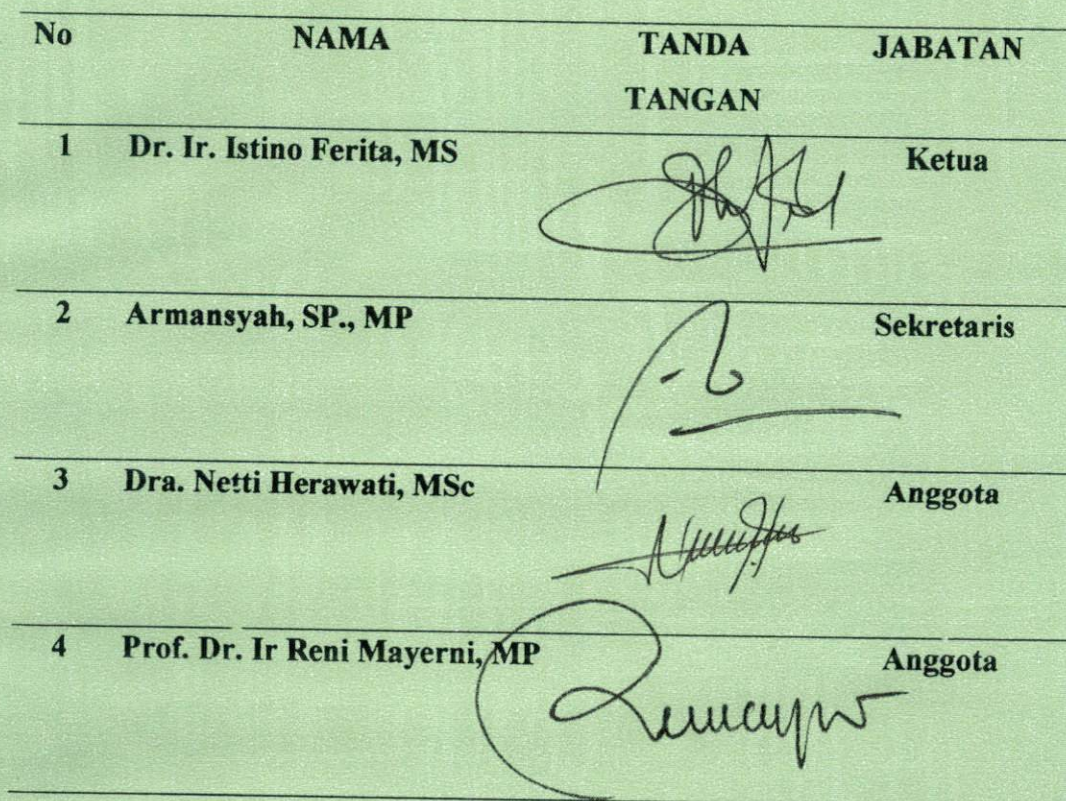 No NAMA TANDA TANGAN JABATAN
1 Dr. Ir. Istino Ferita, MS Ketua
2 Armansyah, SP., MP Sekretaris
3 Dra. Netti Herawati, MSc Anggota
4 Prof. Dr. Ir Reni Mayerni, MP Anggota